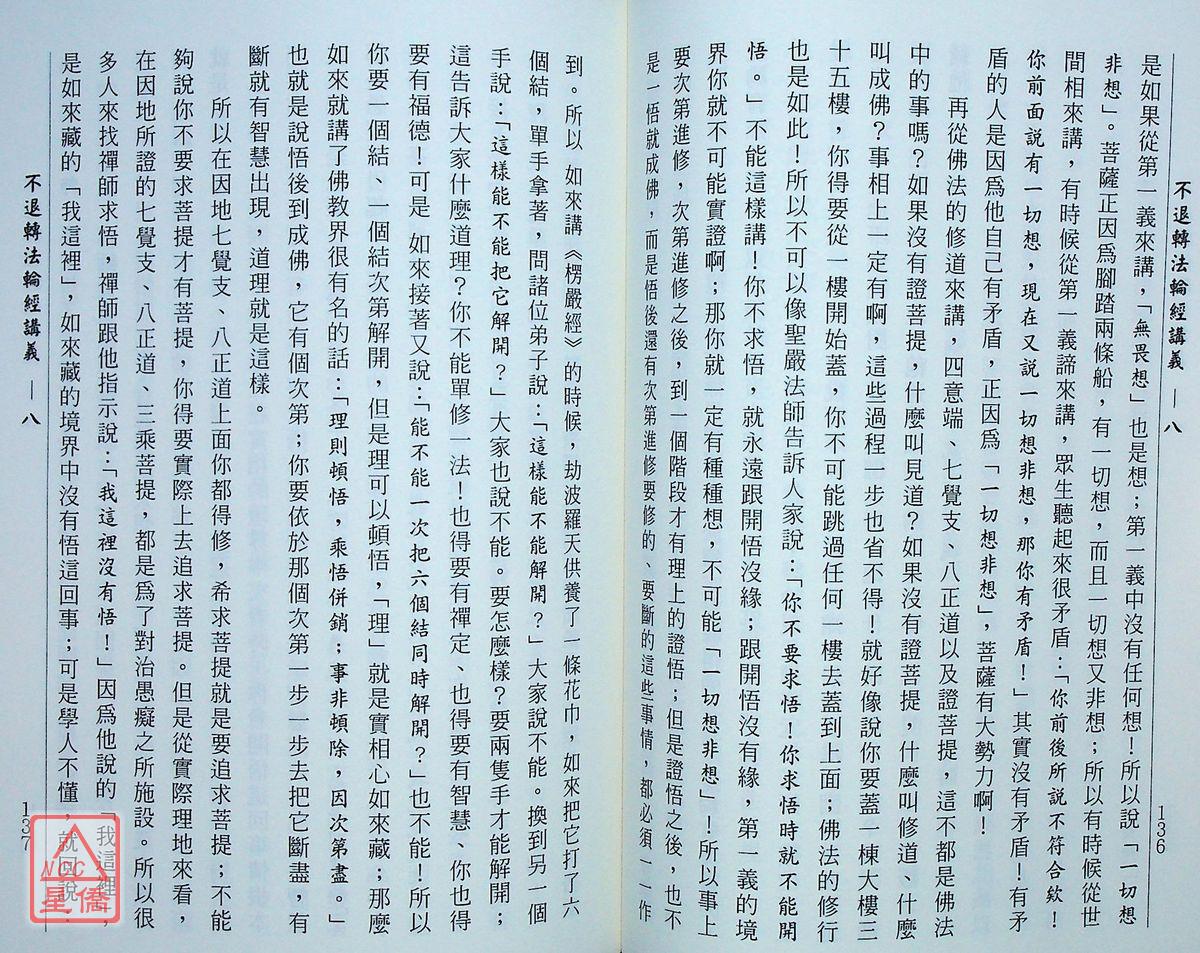 不退轉法輪經講義 — 八
136
是如果從第一義來講，「無畏想」也是想；第一義中沒有任何想！所以說「一切想
非想」。菩薩正因爲腳踏兩條船，有一切想，而且一切想又非想；所以有時候從世
間相來講，有時候從第一義諦來講，眾生聽起來很矛盾：「你前後所說不符合欸！
你前面說有一切想，現在又說一切想非想，那你有矛盾！」其實沒有矛盾！有矛
盾的人是因爲他自己有矛盾，正因爲「一切想非想」，菩薩有大勢力啊！
再從佛法的修道來講，四意端、七覺支、八正道以及證菩提，這不都是佛法
中的事嗎？如果沒有證菩提，什麼叫見道？如果沒有證菩提，什麼叫修道、什麼
叫成佛？事相上一定有啊，這些過程一步也省不得！就好像說你要蓋一棟大樓三
十五樓，你得要從一樓開始蓋，你不可能跳過任何一樓去蓋到上面；佛法的修行
也是如此！所以不可以像聖嚴法師告訴人家說：「你不要求悟！你求悟時就不能開
悟。」不能這樣講！你不求悟，就永遠跟開悟沒緣；跟開悟沒有緣，第一義的境
界你就不可能實證啊；那你就一定有種種想，不可能「一切想非想」！所以事上
要次第進修，次第進修之後，到一個階段才有理上的證悟；但是證悟之後，也不
是一悟就成佛，而是悟後還有次第進修要修的、要斷的這些事情，都必須一一作
到。所以 如來講《楞嚴經》的時候，劫波羅天供養了一條花巾，如來把它打了六
個結，單手拿著，問諸位弟子說：「這樣能不能解開？」大家說不能。換到另一個
手說：「這樣能不能把它解開？」大家也說不能。要怎麼樣？要兩隻手才能解開；
這告訴大家什麼道理？你不能單修一法！也得要有禪定、也得要有智慧、你也得
要有福德！可是 如來接著又說：「能不能一次把六個結同時解開？」也不能！所以
你要一個結、一個結次第解開，但是理可以頓悟，「理」就是實相心如來藏；那麼
如來就講了佛教界很有名的話：「理則頓悟，乘悟併銷；事非頓除，因次第盡。」
也就是說悟後到成佛，它有個次第；你要依於那個次第一步一步去把它斷盡，有
斷就有智慧出現，道理就是這樣。
所以在因地七覺支、八正道上面你都得修，希求菩提就是要追求菩提；不能
夠說你不要求菩提才有菩提，你得要實際上去追求菩提。但是從實際理地來看，
在因地所證的七覺支、八正道、三乘菩提，都是爲了對治愚癡之所施設。所以很
多人來找禪師求悟，禪師跟他指示說：「我這裡沒有悟！」因爲他說的「我這裡」，
是如來藏的「我這裡」，如來藏的境界中沒有悟這回事；可是學人不懂，就回說：
不退轉法輪經講義 — 八
137
NCC
星僑